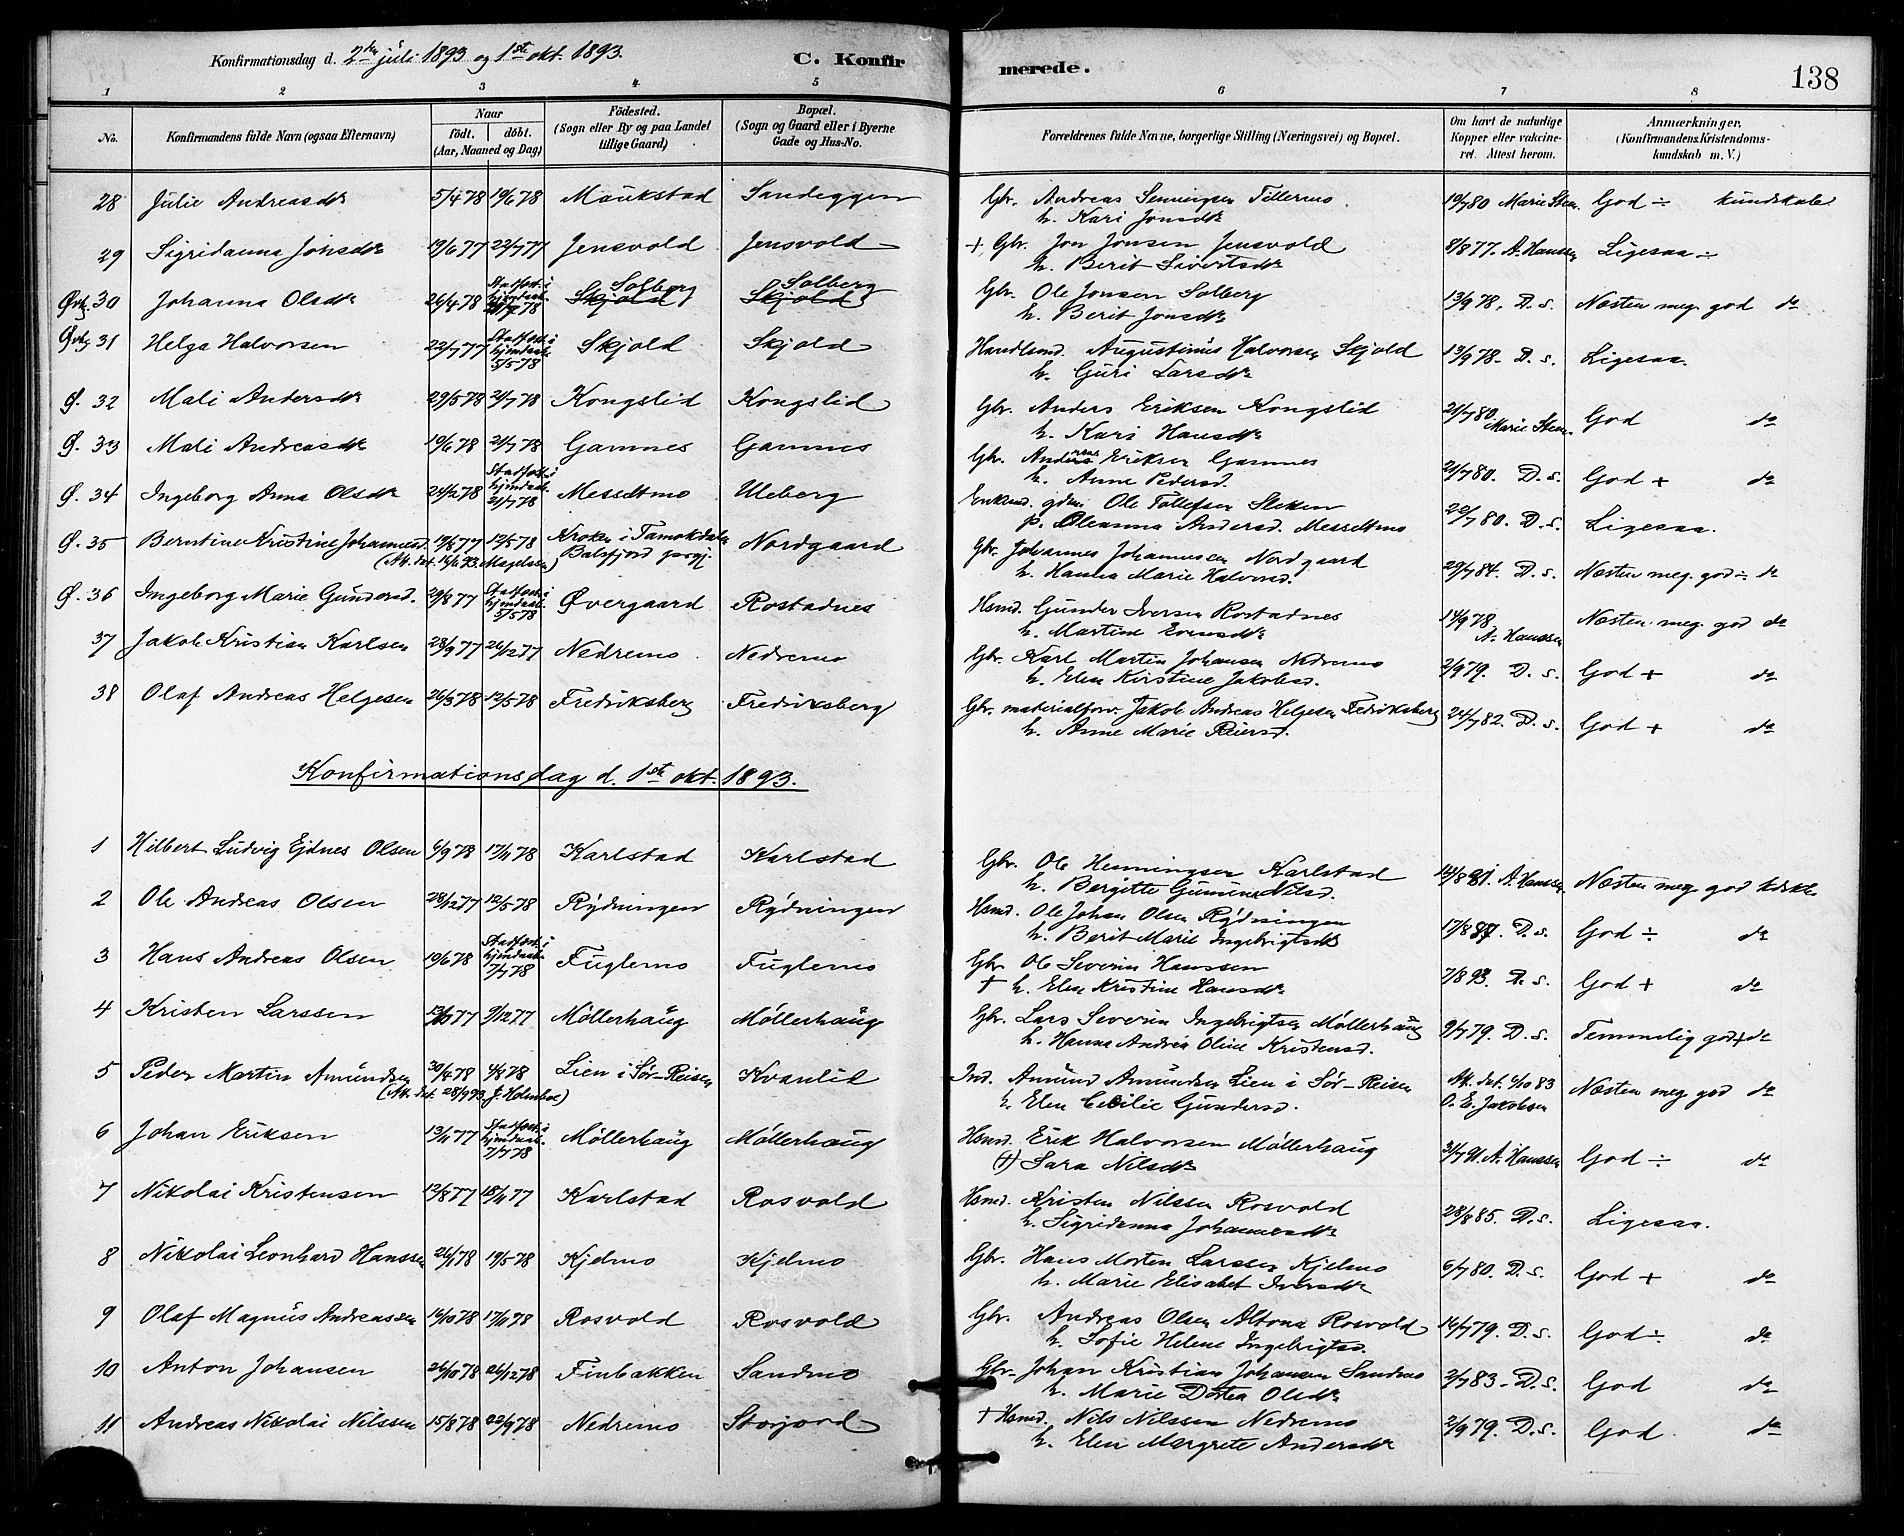 Konfirmationsdag d. 2den juli 1893 og 1ste okt. 1893.
C. Konfirmerede.
138
1 2 3 4 5 6 7 8
No.
Konfirmandens fulde Navn (ogsaa Efternavn)
Naar
født. døbt.
(Aar, Maaned og Dag)
Födested.
(Sogn eller By og paa Landet
tillige Gaard)
Bopæl.
(Sogn og Gaard eller i Byerne
Gade og Hus-No.
Forældrenes fulde Navne, borgerlige Stilling (Næringsvei) og Bopæl.
Om havt de naturlige
Kopper eller vakcine-
ret. Attest herom.
Anmærkninger,
(Konfirmandens Kristendoms-
kundskab m. V.)
28 Julie Andreasdr 5/4 78 19/6 78 Maukstad Sandeggen Gbr. Andreas Tillermo. 19/7 80 Marie Sten. God ÷ kundskaber
h. Kari Jonsdr
29 Sigridanna Jonsdr 19/6 77 22/7 77 Jensvold Jensvold + Gbr. Jon Jonsen Jensvold 8/8 77. A. Hanssen Ligesaa ÷
h. Berit Sivertsdr
30 Johanna Olsdr 26/4 78 Stadfæst. i hjemdaab Skjold Solberg Skjold Solberg Gbr. Ole Jonsen Solberg 13/9 78. D. s. Næsten meg. god do
h. Berit Jonsdr
31 Helga Halvorsen 22/7 77 Stadfæst. i hjemdaab 5/5 78 Skjold Skjold Handlsmd. Augustinus Halvorsen Skjold 13/9 78. D. s. Ligesaa.
h. Guri Larsdr
Ø. 32 Mali Andersdr 29/5 78 21/7 78 Kongslid Kongslid Gbr. Anders Eriksen Kongslid 21/7 80. Marie Sten. God do
h. Kari Hansdr
Ø. 33 Mali Andreasdr 19/6 78 21/7 78 Gamnes Gamnes Gbr. Andreas Eriksen Gamnes 21/7 80. D. s. God + do
h. Anne Pedersd.
Ø. 34 Ingeborg Anna Olsdr 24/2 78 Stadfæst. i hjemdaab 21/7 78 Messeltmo Ueberg Enkemd. gdm. Ole Tollefsen Steken 22/7 80. D. s. Ligesaa.
p. Oleanna Andersd. Messeltmo
Ø. 35 Berntine Kristine Johannesd. 19/8 77 12/5 78 Kroken i Tamokdalen Nordgaard Gbr. Johannes Johannessen Nordgaard 29/7 84. D. s. Næsten meg. god ÷ do
(At. dat. 16/6 93. Magelssen) Balsfjord prgj. h. Hanna Marie Halvorsd.
Ø. 36 Ingeborg Marie Gundersd. 29/8 77 Stadfæst. i hjemdaab 5/5 78 Øvergaard Rostadnes Hsmd. Gunder Iversen Rostadnes 14/9 78 A. Hanssen Næsten meg. god do
h. Martine Evensdr
37 Jakob Kristian Karlsen 28/9 77 26/12 77 Nedremo Nedremo Gbr. Karl Martin Johansen Nedremo 2/9 79. D. s. God + do
h. Elen Kirstine Jakobsd.
38 Olaf Andreas Helgesen 26/3 78 12/5 78 Fredriksberg Fredriksberg Gbr. materialforv. Jakob Andreas Helgesen Fedriksberg 24/7 82. D. s. God + do
h. Anne Marie Peiersd.
Konfirmationsdag d. 1ste okt. 1893.
1 Hilbert Ludvig Ejdnes Olsen 6/9 78 17/11 78 Karlstad Karlstad Gbr. Ole Henningsen Karlstad 14/8 81. A. Hanssen Næsten meg god kdskb.
h. Bergitte Nilsd.
2 Ole Andreas Olsen 28/12 77 12/5 78 Rydningen Rydningen Hsmd. Ole Johan Olsen Rydningen 17/8 87. D. s. God ÷ do
h. Berit Marie Ingebrigtsdr
3 Hans Andreas Olsen 19/6 78 Stadfæst. i hjemdaab 7/7 78 Fuglemo Fuglemo Gbr Ole Severin Hanssen 7/8 93. D. s. God + do
+ h. Elen Kristine Hansdr
4 Kristen Larssen 77 9/12 77 Møllerhaug Møllerhaug Gbr. Lars Severin Ingebrigtsen Møllerhaug 9/7 79. D. s. Temmelig god + do
h. Hanna Andrea Oline Kristensd.
5 Peder Martin Amundsen 30/4 78 4/8 78 Lien i Sør-Reisen Kvanlid Ind. Amund Amundsen Lien i Sør-Reisen At. dat. 6/10 83 Næsten meg god do
(At. dat. 28/9 93. J. Holmboe) h. Elen Cecilie Gundersd. O. E. Jakobsen
6 Johan Eriksen 13/11 77 Stadfæst. i hjemdaab 7/7 78 Møllerhaug Møllerhaug Hsmd. Erik Halvorsen Møllerhaug 31/7 91. A. Hanssen God ÷ do
(+) Sara Nilsdr
7 Nikolai Kristensen 13/8 77 18/11 77 Karlstad Rosvold Hsmd. Kristen Nilssen Rosvold 28/8 85. D. s. Ligesaa.
h. Sigridanna Johannesdr
8 Nikolai Leonhard Hanssen 26/1 78 19/5 78 Kjelmo Kjelmo Gbr. Hans Morten Larssen Kjelmo 6/7 80. D. s. God + do
h. Marie Elisabet Iversdr
9 Olaf Magnus Andreassen 16/10 78 17/11 78 Rosvold Rosvold Gbr. Andreas Olsen Altona Rosvold 16/7 79. D. s. God ÷ do
h. Sofie Helene Ingebrigtsd.
10 Anton Johansen 26/10 78 26/12 78 Finbakken Sandmo Gbr. Johan Kristian Johansen Sandmo 2/7 83. D. s. God do
h. Marie Dortea Olsdr
11 Andreas Nikolai Nilssen 15/8 78 22/9 78 Nedremo Storjord + Hsmd. Nils Nilssen Nedremo 2/9 79. D. s. God do
h. Elen Margrete Andersdr